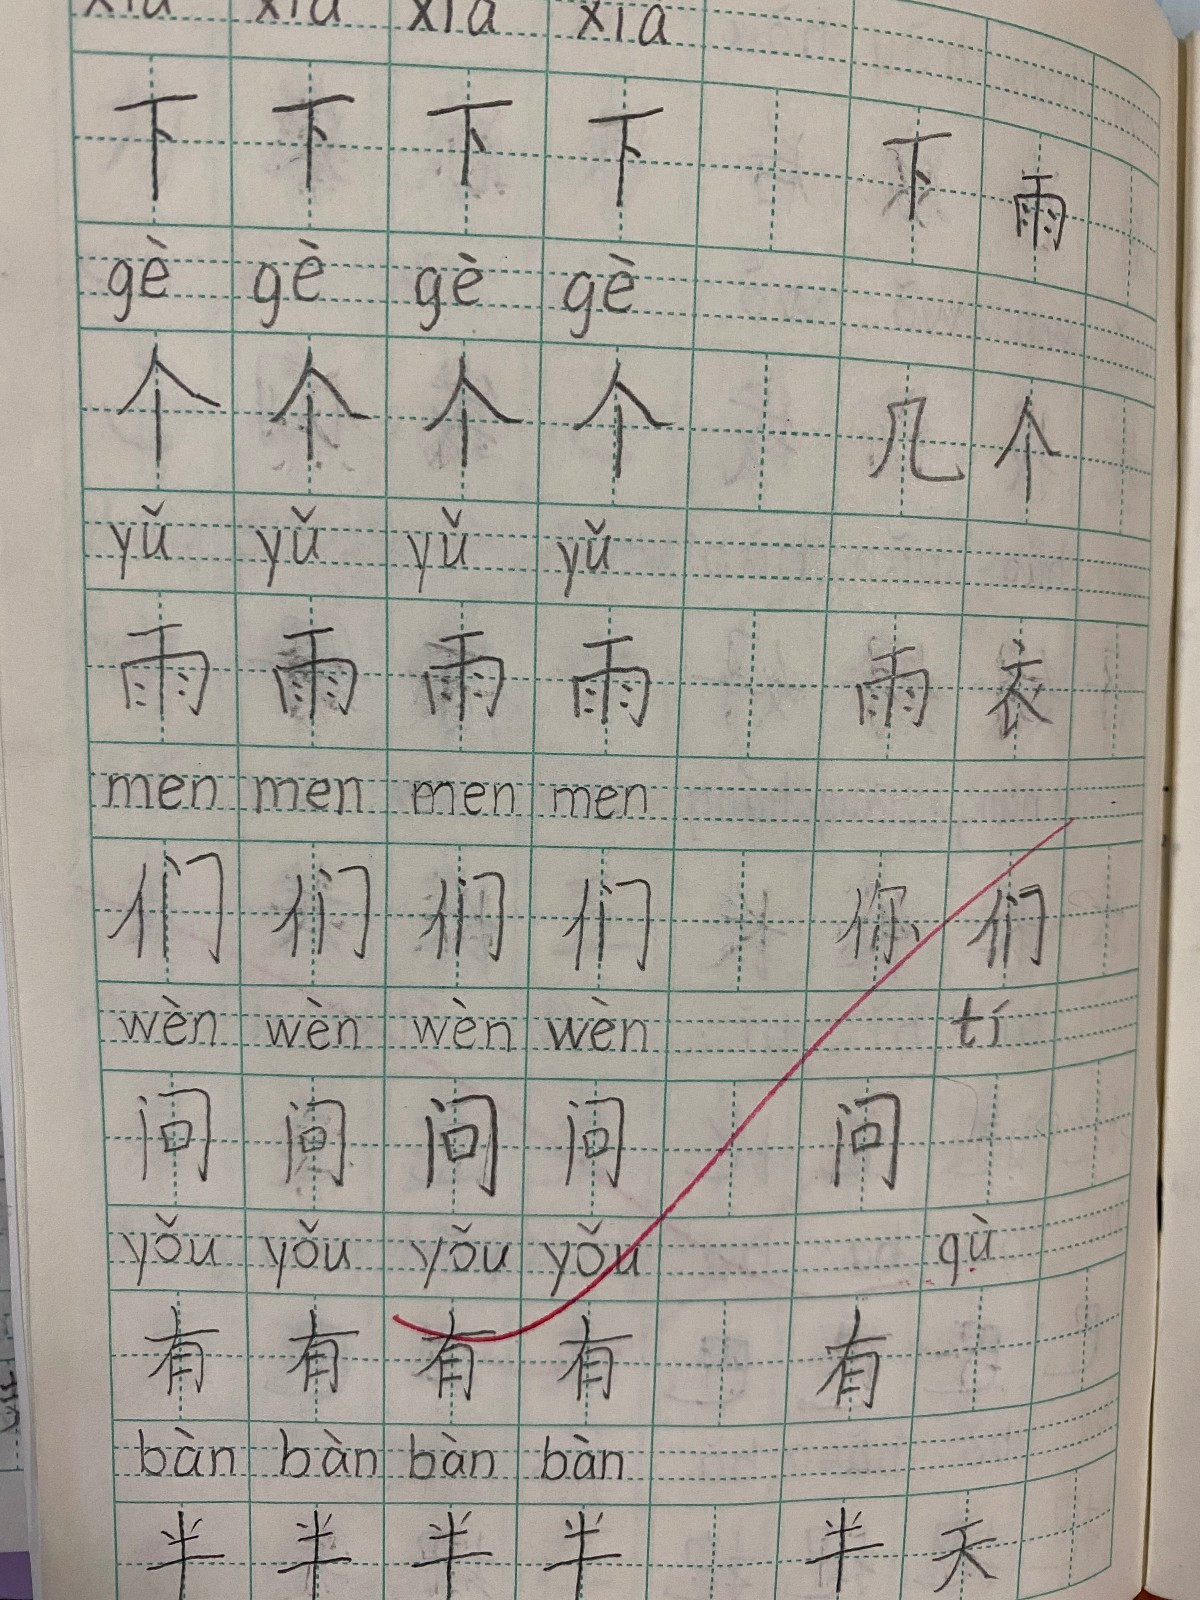 xià xià xià xià
下 下 下 下 下 雨
gè gè gè gè
个 个 个 个 几 个
yǔ yǔ yǔ yǔ
雨 雨 雨 雨 雨 衣
men men men men
们 们 们 们 你 们
wèn wèn wèn wèn tí
问 问 问 问 问
yǒu yǒu yǒu yǒu qù
有 有 有 有 有
bàn bàn bàn bàn
半 半 半 半 半 天